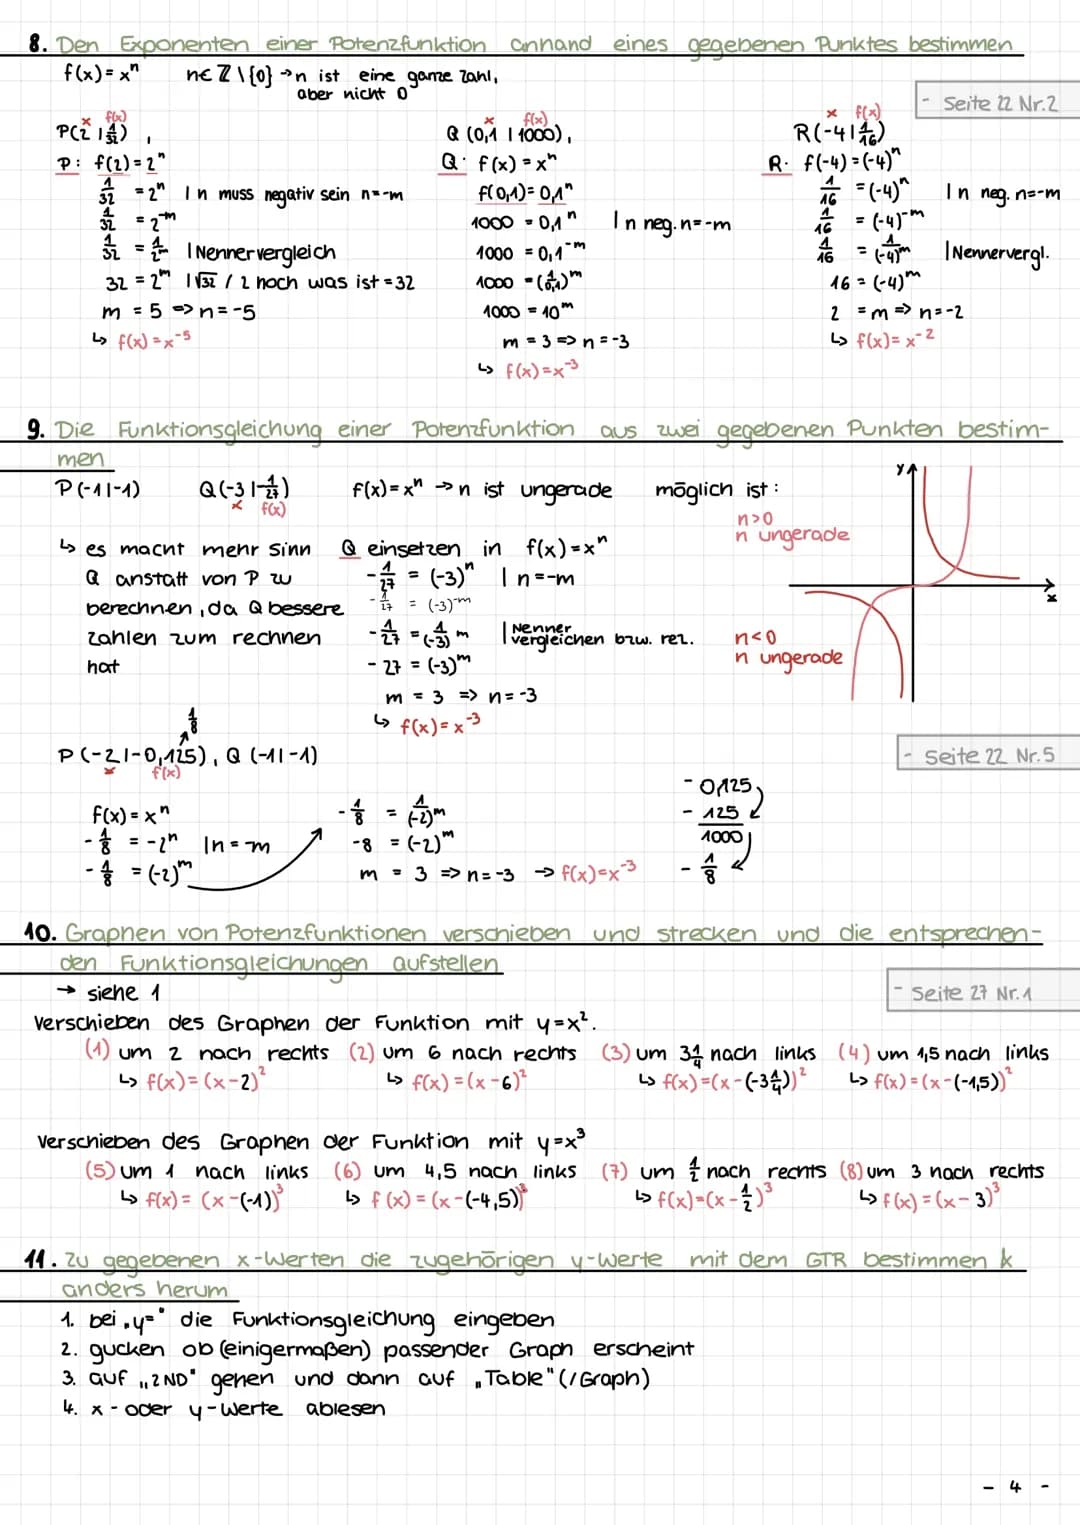 8. Den Exponenten einer Potenzfunktion anhand eines gegebenen Punktes bestimmen
f(x) = xⁿ n∈ℤ\{0} → n ist eine ganze Zahl,
aber nicht 0
- Seite 22 Nr.2
x f(x)
P(2 | 1/32),
P: f(2) = 2ⁿ
1/32 = 2ⁿ | n muss negativ sein n=-m
1/32 = 2⁻ᵐ
1/32 = 1/2ᵐ | Nennervergleich
32 = 2ᵐ | √32 / 2 hoch was ist = 32
m = 5 => n = -5
↳ f(x) = x⁻⁵
x f(x)
Q (0,1 | 1000),
Q: f(x) = xⁿ
f(0,1) = 0,1ⁿ
1000 = 0,1ⁿ | n neg. n=-m
1000 = 0,1⁻ᵐ
1000 = (1/0,1)ᵐ
1000 = 10ᵐ
m = 3 => n = -3
↳ f(x) = x⁻³
x f(x)
R(-4 | 1/16)
R: f(-4) = (-4)ⁿ
1/16 = (-4)ⁿ | n neg. n=-m
1/16 = (-4)⁻ᵐ
1/16 = 1/(-4)ᵐ | Nennervergl.
16 = (-4)ᵐ
2 = m => n = -2
↳ f(x) = x⁻²
9. Die Funktionsgleichung einer Potenzfunktion aus zwei gegebenen Punkten bestim-
men
P(-1|-1) Q(-3|-1/27) f(x) = xⁿ → n ist ungerade möglich ist:
x f(x)
↳ es macht mehr Sinn
Q anstatt von P zu
berechnen, da Q bessere
Zahlen zum rechnen
hat
Q einsetzen in f(x) = xⁿ
-1/27 = (-3)ⁿ | n=-m
-1/27 = (-3)⁻ᵐ
-1/27 = 1/(-3)ᵐ | Nenner
vergleichen bzw. rez.
-27 = (-3)ᵐ
m = 3 => n = -3
↳ f(x) = x⁻³
n>0
n ungerade
n<0
n ungerade
y
x
1/8
P(-2|-0,125), Q(-1|-1)
x f(x)
- Seite 22 Nr.5
f(x) = xⁿ
-1/8 = -2ⁿ | n = -m
-1/8 = (-2)ᵐ
-1/8 = 1/(-2)ᵐ
-8 = (-2)ᵐ
m = 3 => n = -3 → f(x) = x⁻³
- 0,125
- 125/1000
- 1/8
10. Graphen von Potenzfunktionen verschieben und strecken und die entsprechen-
den Funktionsgleichungen aufstellen
→ siehe 1
- Seite 27 Nr.1
Verschieben des Graphen der Funktion mit y=x².
(1) um 2 nach rechts (2) um 6 nach rechts (3) um 3 1/4 nach links (4) um 1,5 nach links
↳ f(x) = (x-2)² ↳ f(x) = (x-6)² ↳ f(x) = (x-(-3 1/4))² ↳ f(x) = (x-(-1,5))²
Verschieben des Graphen der Funktion mit y=x³
(5) um 1 nach links (6) um 4,5 nach links (7) um 1/2 nach rechts (8) um 3 nach rechts
↳ f(x) = (x-(-1))³ ↳ f(x) = (x-(-4,5))³ ↳ f(x) = (x-1/2)³ ↳ f(x) = (x-3)³
11. Zu gegebenen x-Werten die zugehörigen y-Werte mit dem GTR bestimmen &
anders herum
1. bei „y=" die Funktionsgleichung eingeben
2. gucken ob (einigermaßen) passender Graph erscheint
3. auf „2ND" gehen und dann auf „Table" (/Graph)
4. x- oder y-Werte ablesen
- 4 -